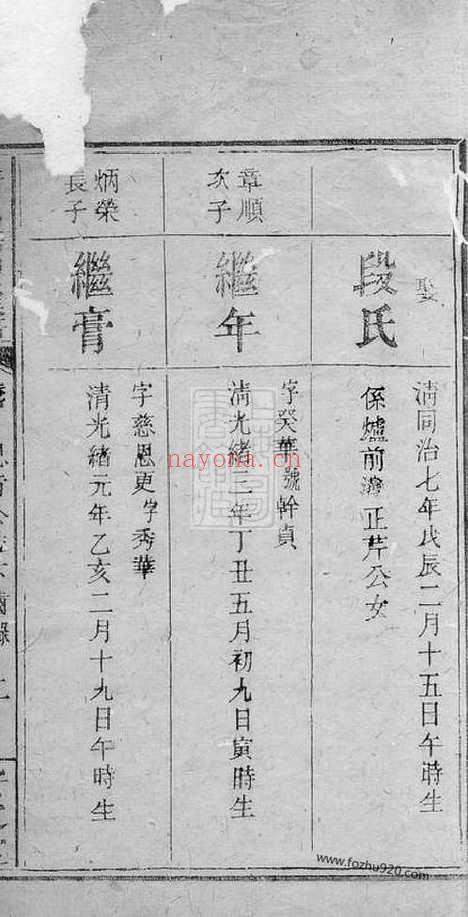 娶
段氏
清同治七年戊辰二月十五日午時生
係爐前灣正芹公女
章順
次子
繼年
字癸華號幹貞
清光緒三年丁丑五月初九日寅時生
炳榮
長子
繼膏
字慈恩更字秀華
清光緒元年乙亥二月十九日午時生
nayona.cn
www.fozhu920.com